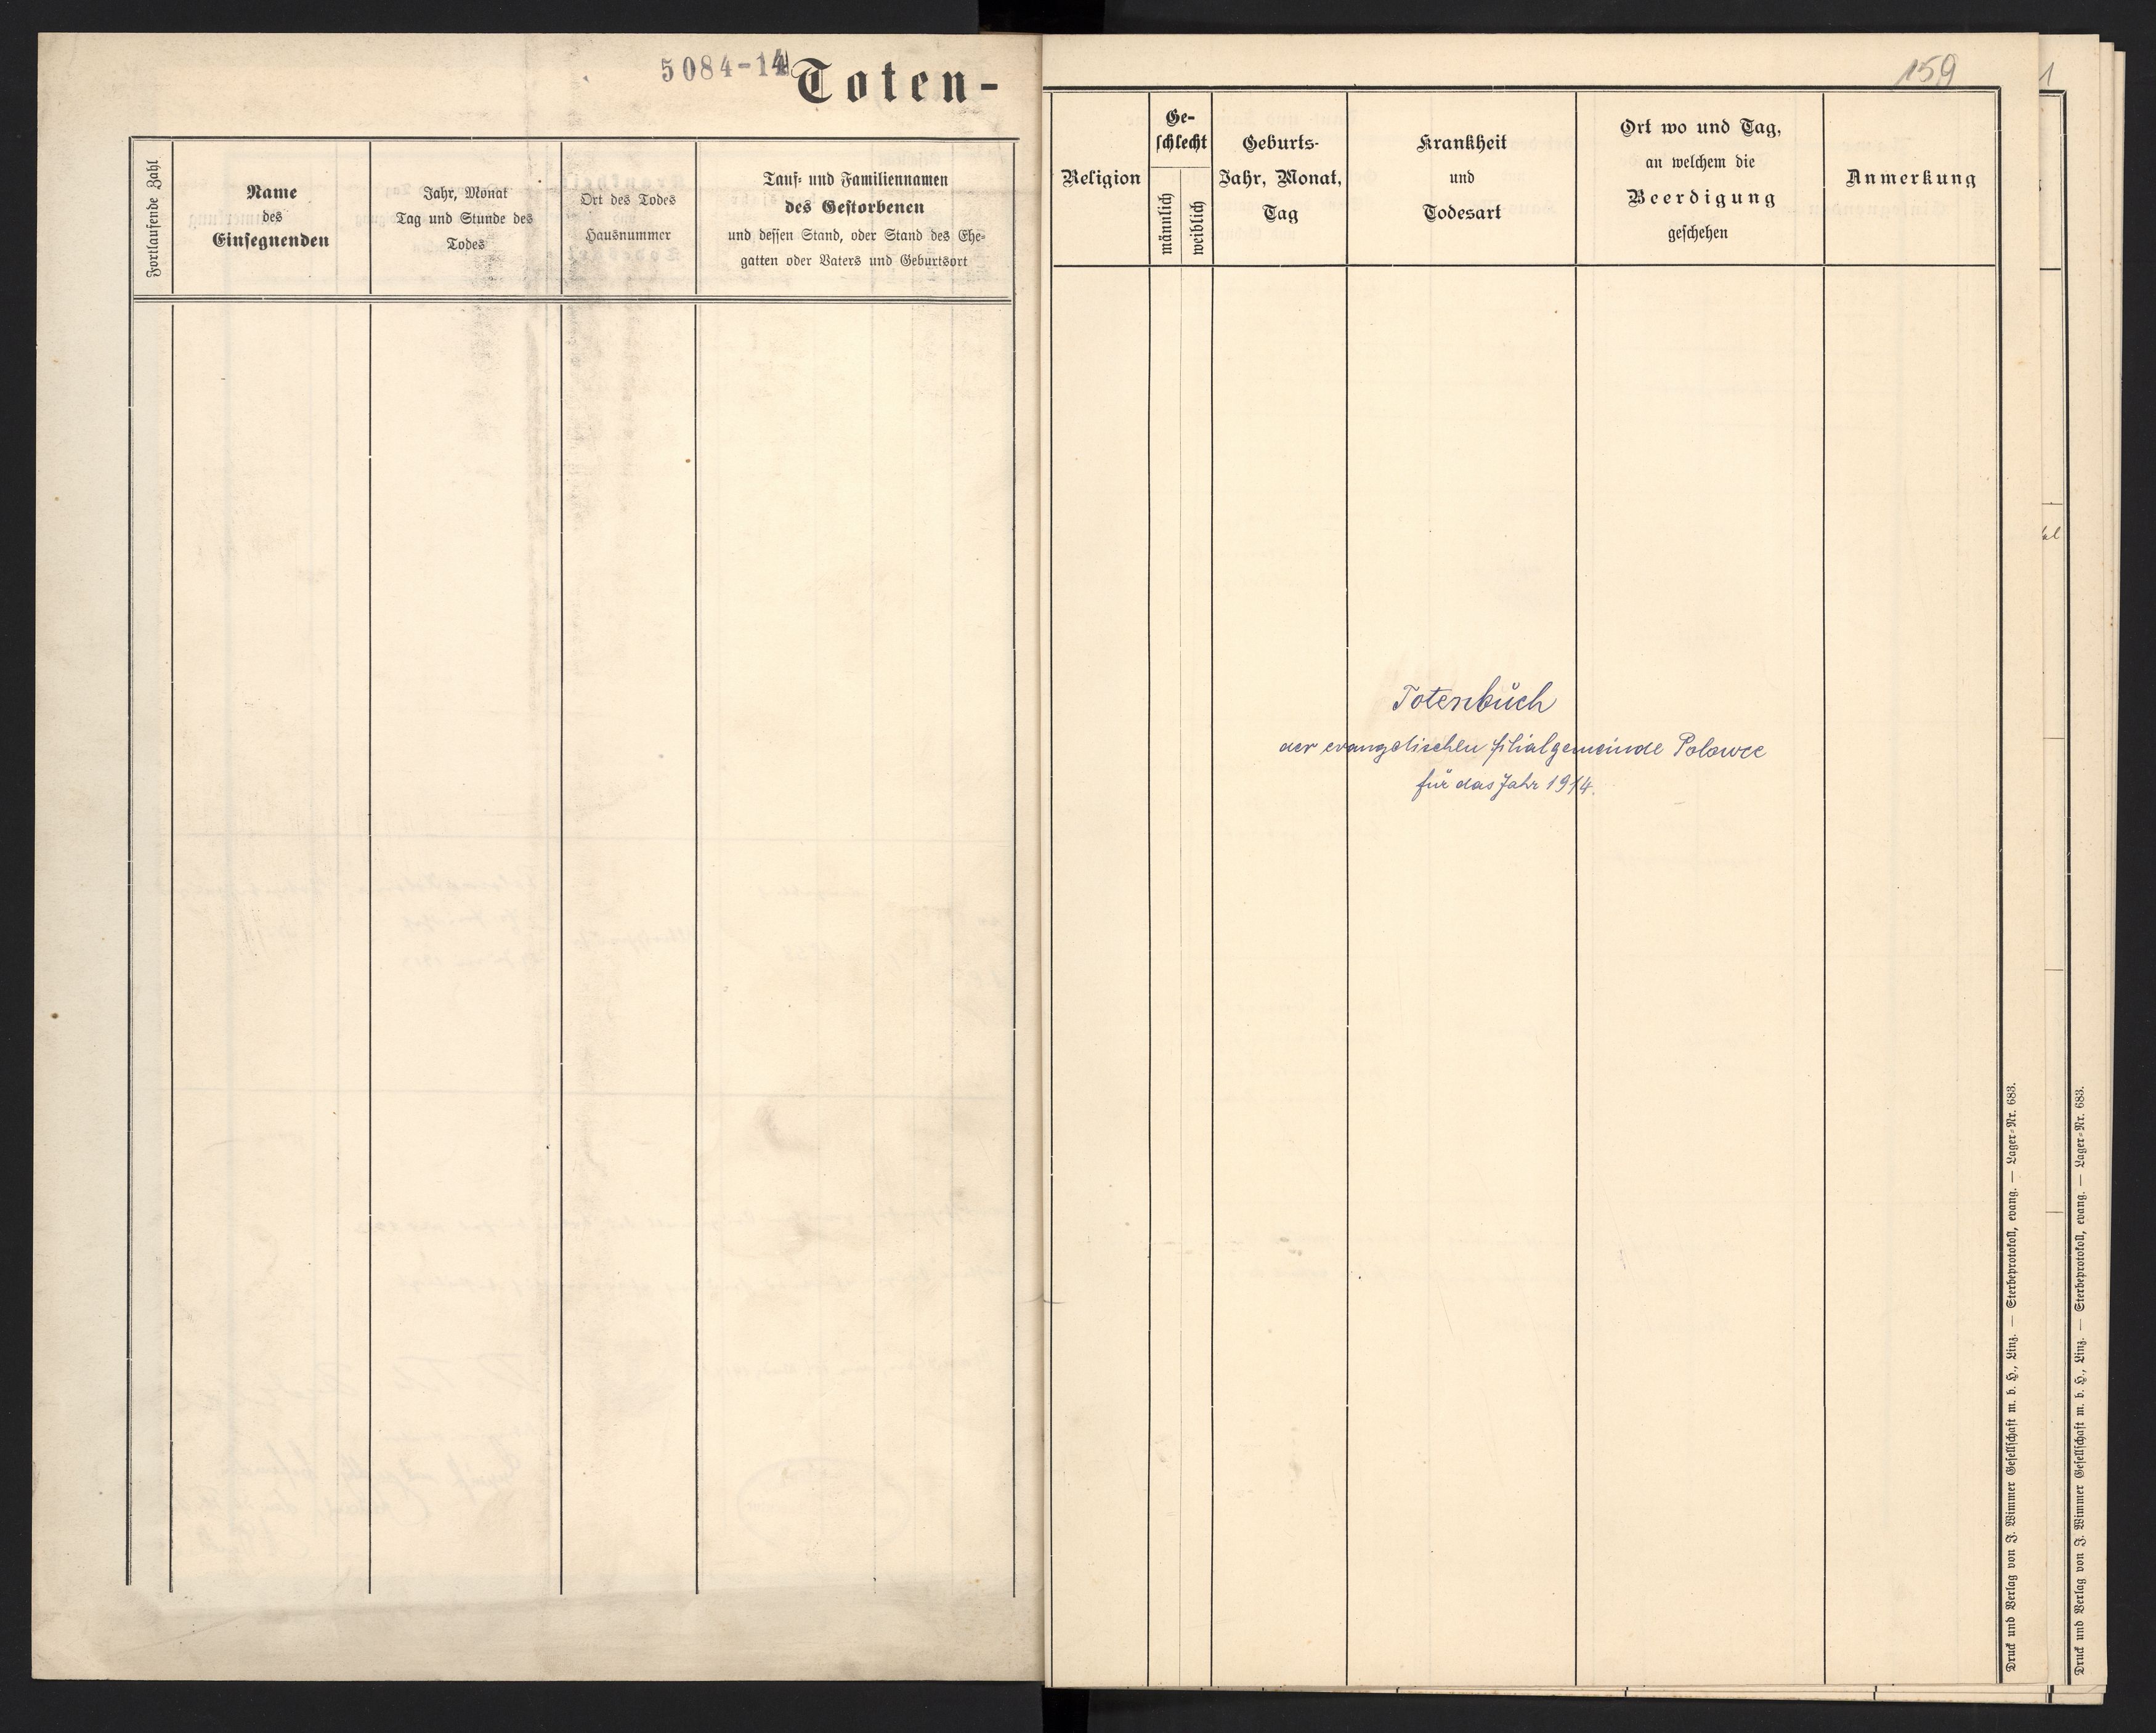 5084-14
Toten-
Fortlaufende Zahl
Name
des
Einsegnenden
Jahr, Monat
Tag und Stunde des
Todes
Ort des Todes
Hausnummer
Tauf- und Familiennamen
des Gestorbenen
und dessen Stand, oder Stand des Ehe-
gatten oder Vaters und Geburtsort
159
Religion
Ge-
schlecht
männlich
weiblich
Geburts-
Jahr, Monat,
Tag
Krankheit
und
Todesart
Ort wo und Tag,
an welchem die
Beerdigung
geschehen
Anmerkung
Totenbuch
der evangelischen Filialgemeinde Polowce
für das Jahr 1914.
Druck und Verlag von J. Wimmer Gesellschaft m. b. H., Linz. — Sterbeprotokoll, evang. — Lager-Nr. 683.
1
Druck und Verlag von J. Wimmer Gesellschaft m. b. H., Linz. — Sterbeprotokoll, evang. — Lager-Nr. 683.